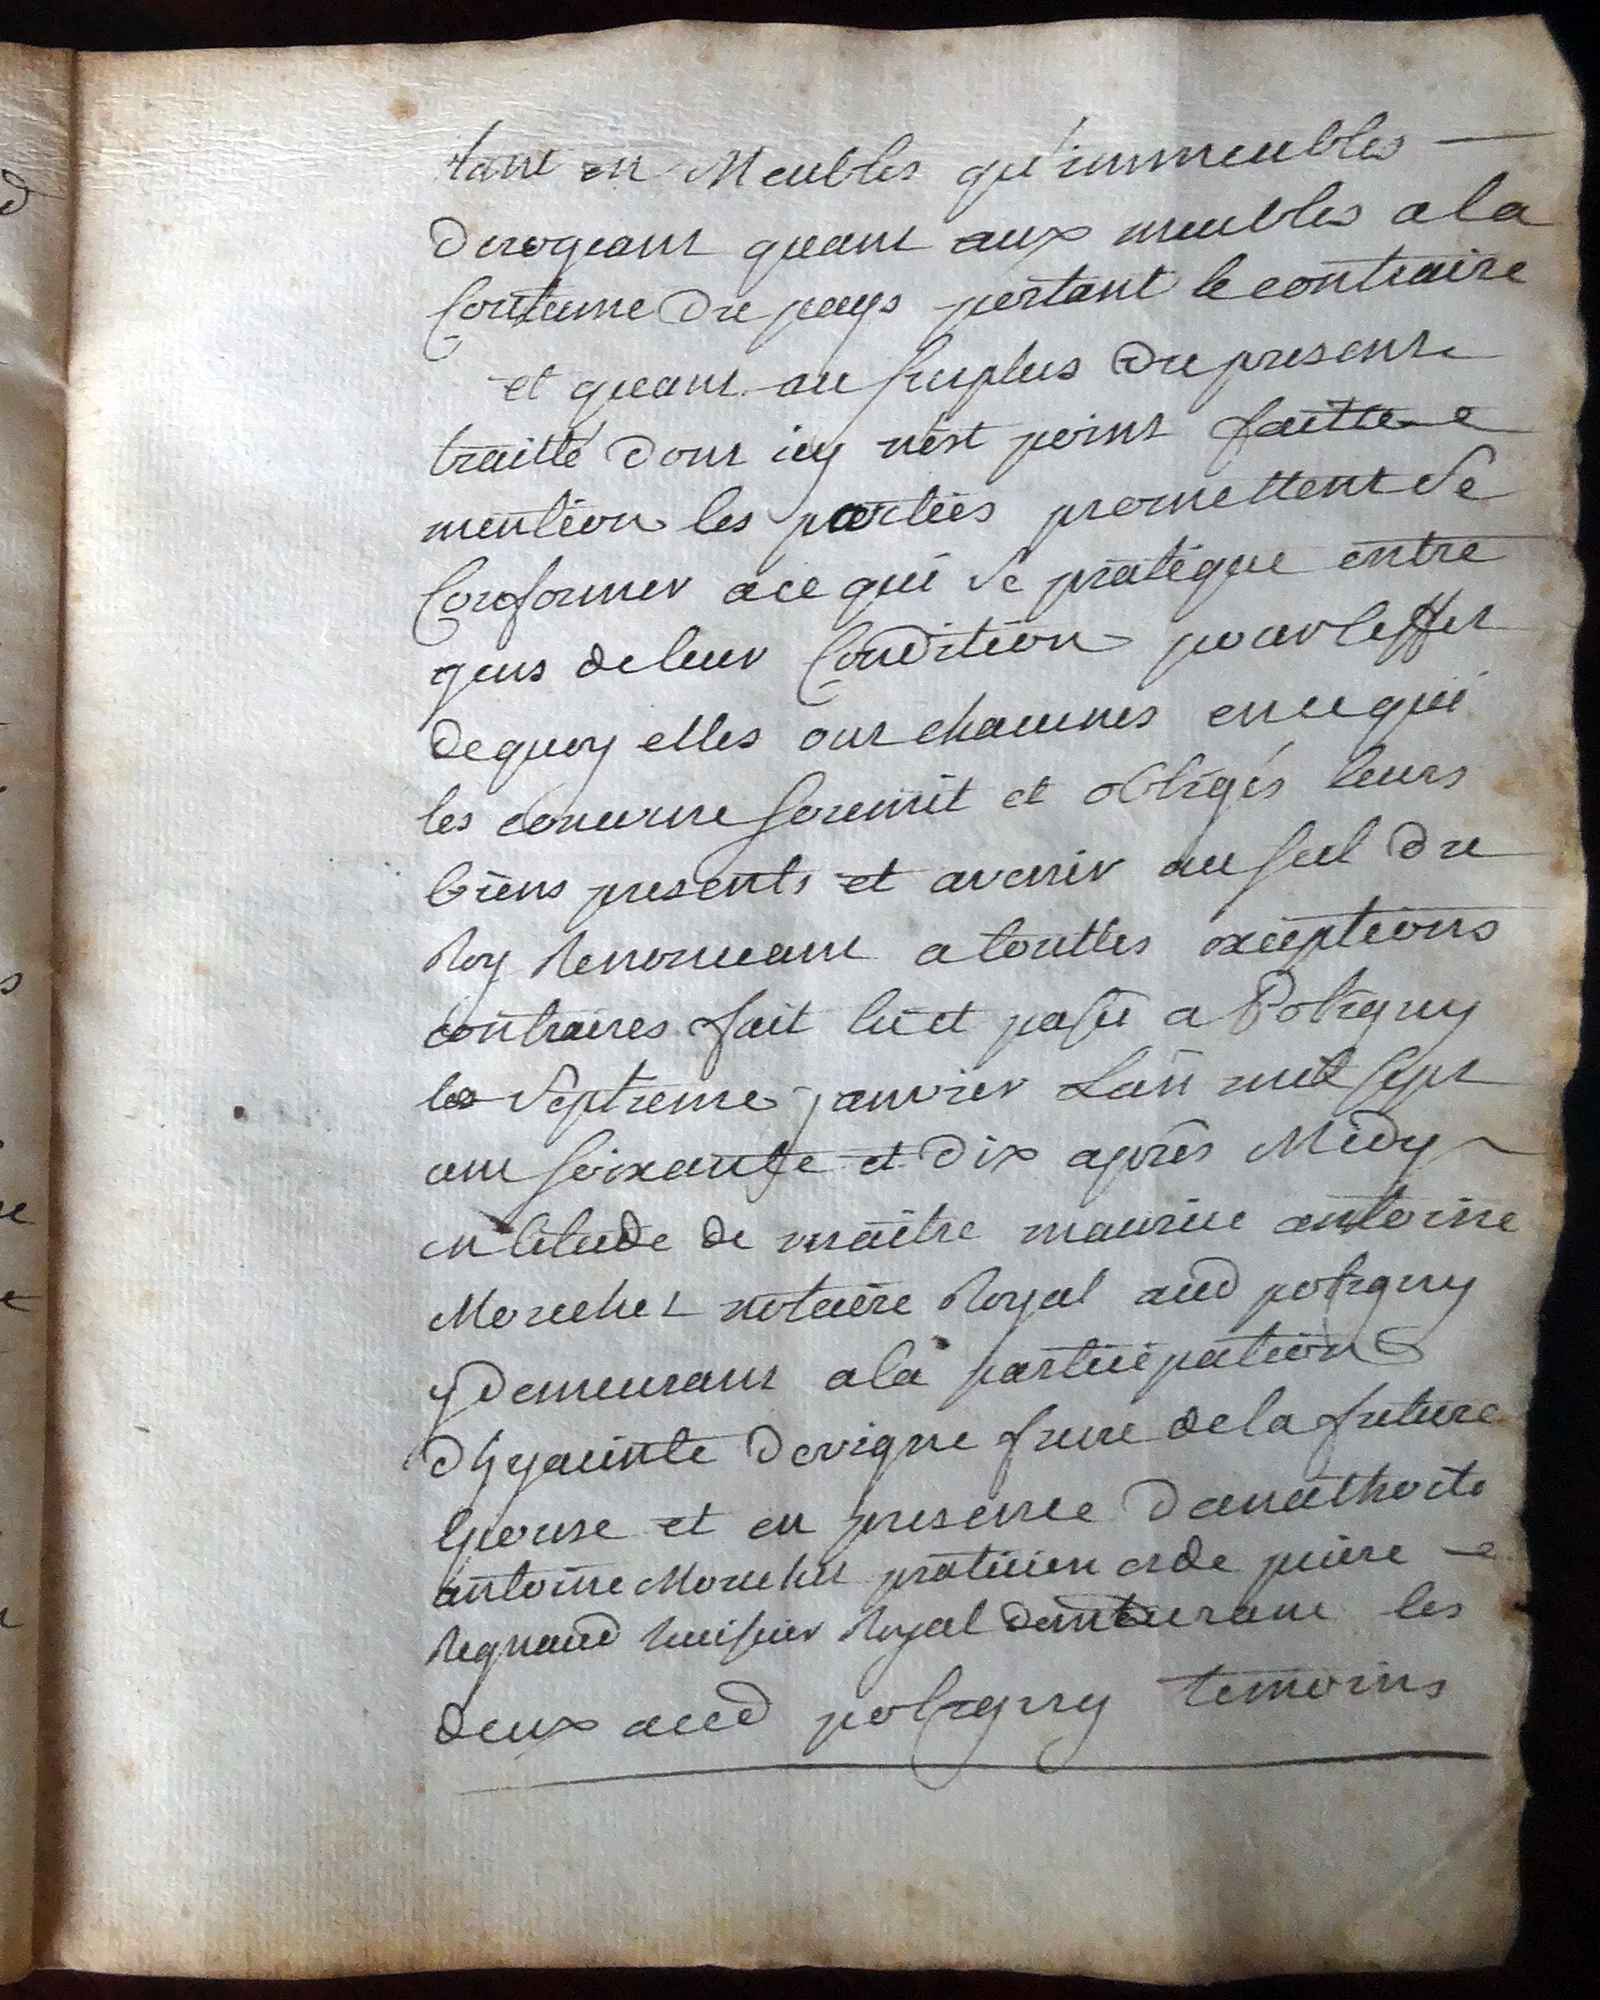 tant en Meubles qu'immeubles
derogeant quant aux meubles a la
Coutume du pays portant le contraire
et quant au surplus du present
traitté dont icy n'est point faitte
mention les parties promettent se
Conformer a ce qui se pratique entre
gens de leur Condition pour leffet
de quoy elles ont chacunes en ce qui
les concerne soumit et obligés leurs
biens presents et avenir au scel du
Roy Renonceant a touttes exceptions
contraires fait lu et passé a Poligny
le Septieme janvier Lan mil sept
cent soixante et dix après Midy
en l'etude de maitre maurice antoine
Mouchet notaire Royal aud poligny
y demeurant a la participation
d'hyacinte Devigne frere de la future
Epouse et en presence d'anathoile
antoine Mouchet praticien et de piere
Regnaud huissier Royal demeurant les
deux aud poligny temoins